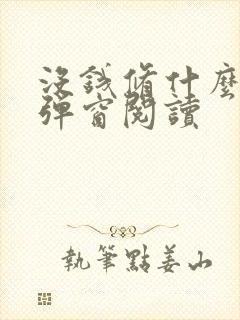 沒錢修什麼
彈窗閱讀
執筆點姜山